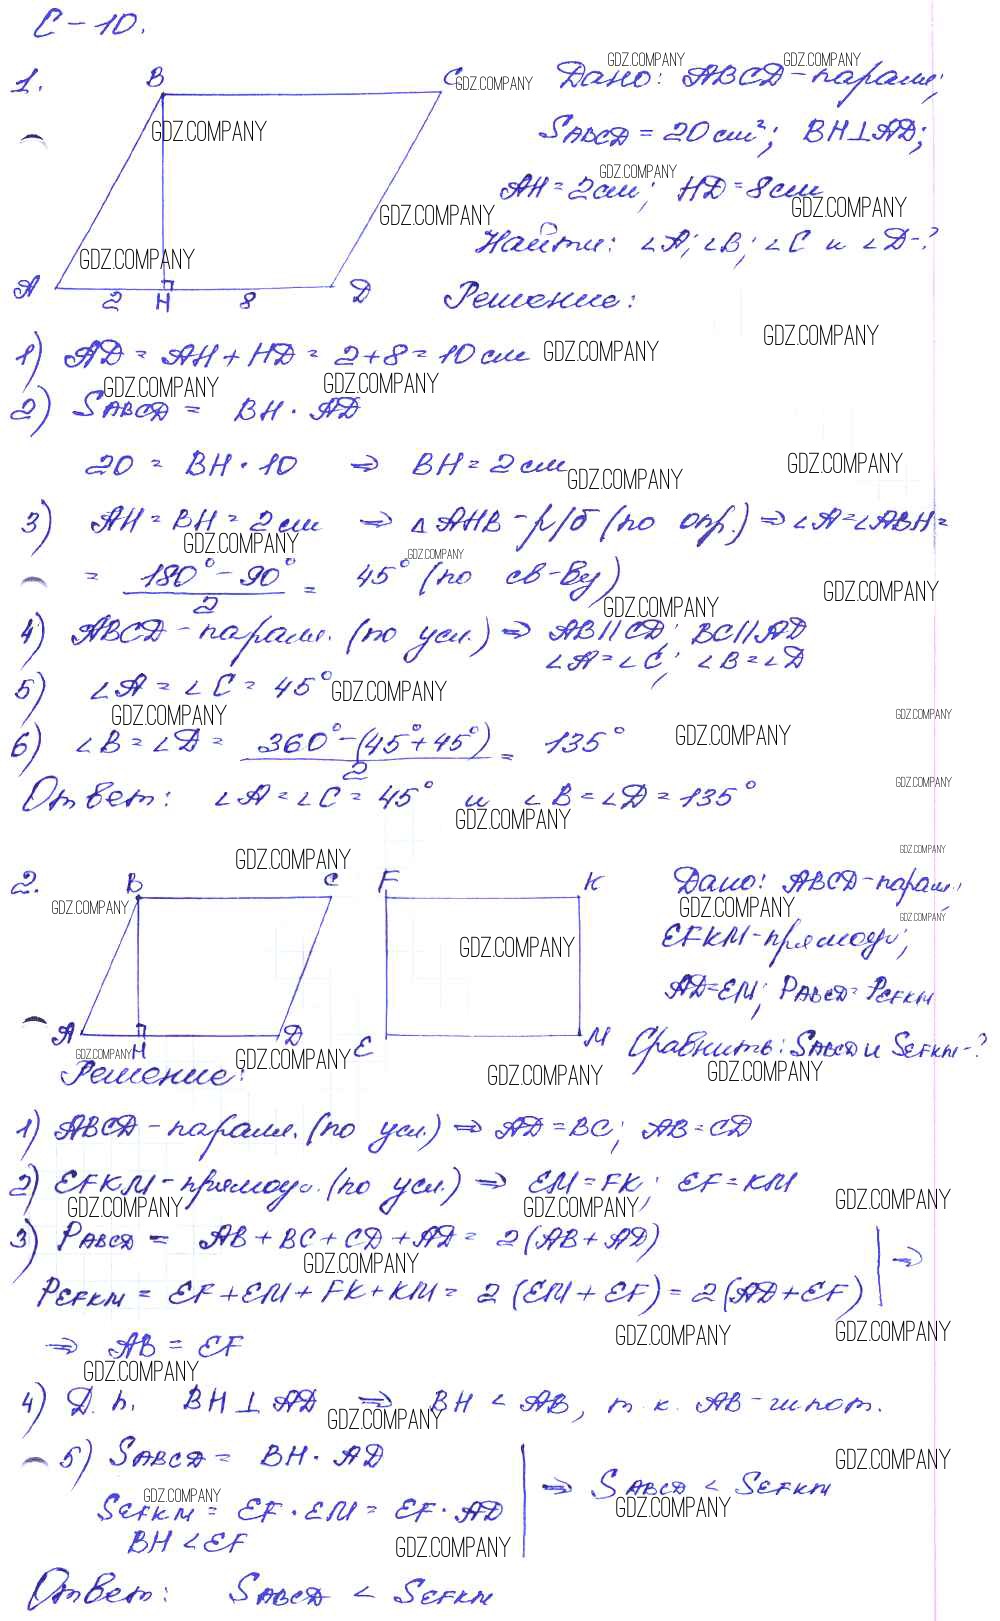 С-10.
1. B C Дано: ABCD-паралл;
SABCD = 20 см²; BH⊥AD;
AH = 2см; HD = 8см
Найти: ∠A; ∠B; ∠C и ∠D-?
A 2 H 8 D Решение:
1) AD = AH + HD = 2+8 = 10 см
2) SABCD = BH · AD
20 = BH · 10 ⇒ BH = 2 см
3) AH = BH = 2 см ⇒ △AHB - р/б (по опр.) ⇒ ∠A = ∠ABH =
= (180° - 90°)/2 = 45° (по св-ву)
4) ABCD - паралл. (по усл.) ⇒ AB||CD; BC||AD
∠A = ∠C; ∠B = ∠D
5) ∠A = ∠C = 45°
6) ∠B = ∠D = (360° - (45° + 45°))/2 = 135°
Ответ: ∠A = ∠C = 45° и ∠B = ∠D = 135°
2. B C F K Дано: ABCD-паралл;
EFKM-прямоуг;
AD=EM; PABCD = PEFKM
A H D E M Сравнить: SABCD и SEFKM-?
Решение:
1) ABCD - паралл. (по усл.) ⇒ AD = BC; AB = CD
2) EFKM - прямоуг. (по усл.) ⇒ EM = FK; EF = KM
3) PABCD = AB + BC + CD + AD = 2(AB + AD)
PEFKM = EF + EM + FK + KM = 2(EM + EF) = 2(AD + EF) | ⇒
⇒ AB = EF
4) Д.п. BH ⊥ AD ⇒ BH < AB, т.к. AB - гипот.
5) SABCD = BH · AD
SEFKM = EF · EM = EF · AD | ⇒ SABCD < SEFKM
BH < EF
Ответ: SABCD < SEFKM
GDZ.COMPANY